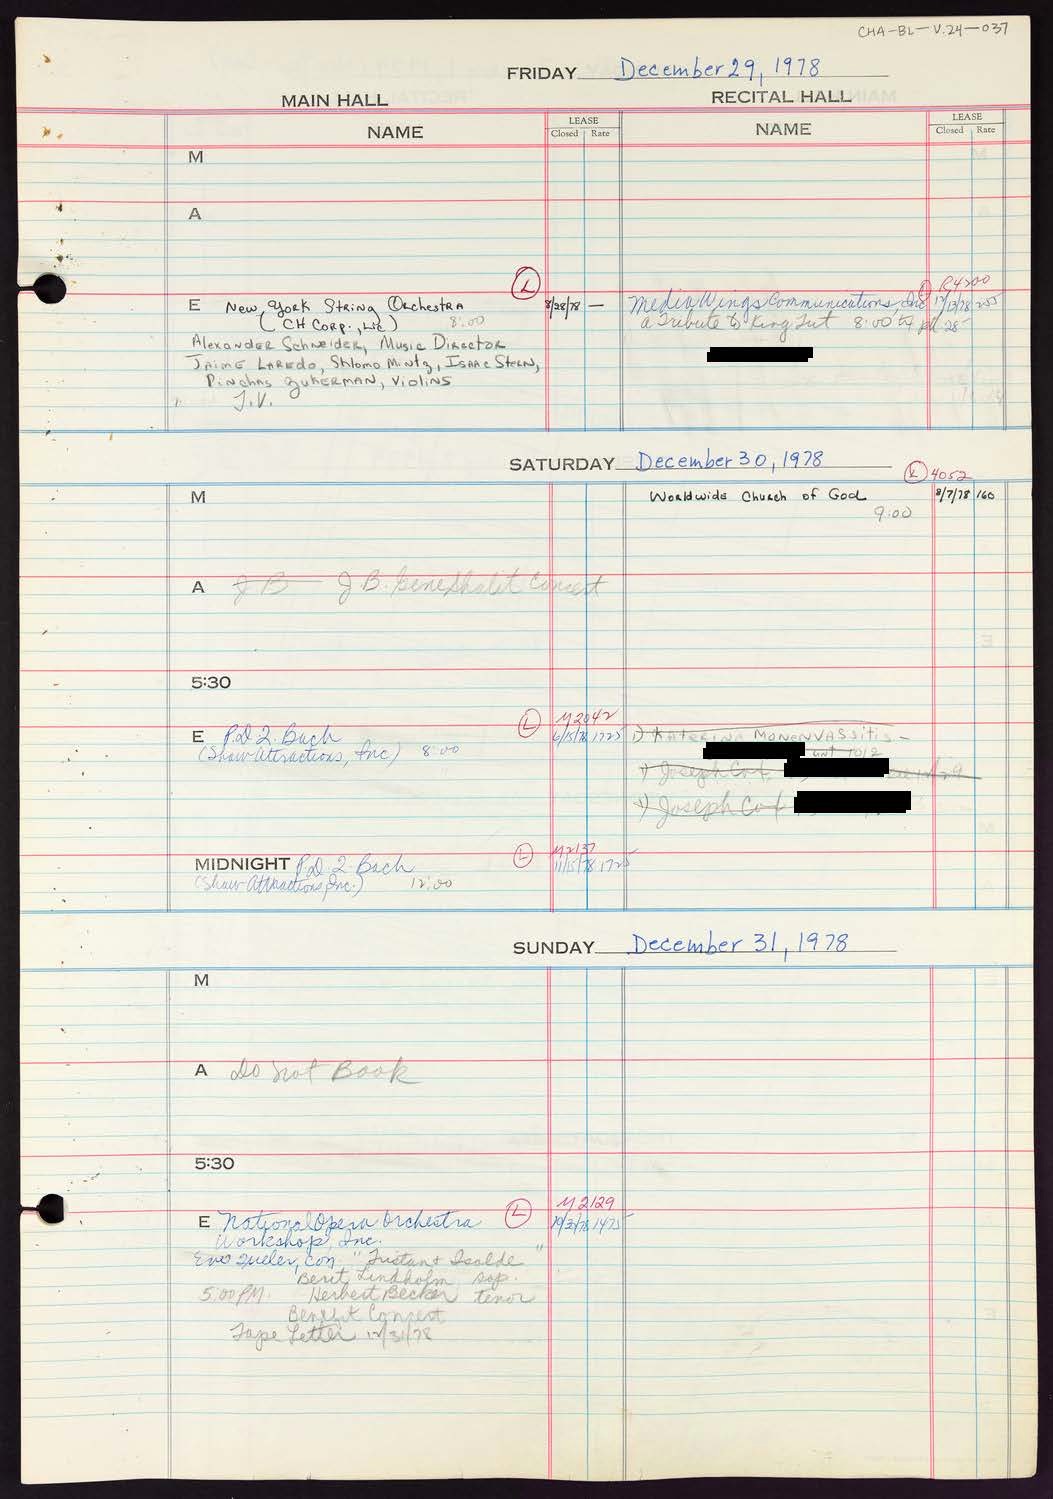 CHA-BL-V.24-037
FRIDAY December 29, 1978
MAIN HALL
RECITAL HALL
NAME
LEASE
Closed Rate
NAME
LEASE
Closed Rate
M
A
E New York String Orchestra
(CH Corp., Lic) 8:00
L
8/28/78 —
Alexander Schneider, Music Director
Jaime Laredo, Shlomo Mintz, Isaac Stern,
Pinchas Zukerman, Violins
T.V.
Media Wings Communications, Inc
a Tribute to King Tut 8:00
SATURDAY December 30, 1978
M
Worldwide Church of God
9:00
L 4052
8/7/78 160
A J B J B. Gene Shalit Concert
5:30
E P.D.Q. Bach
(Shaw Attractions, Inc) 8:00
L
M2042
6/15/78 1725
1) Katerina Monenvassitis -
1) Joseph Cox
1) Joseph Cox
MIDNIGHT P.D.Q. Bach
(Shaw Attractions, Inc.) 12:00
L
M2137
11/15/78 1725
SUNDAY December 31, 1978
M
A Do Not Book
5:30
E National Opera Orchestra
Workshop, Inc.
L
M2129
1475
Eve Queler, con. "Tristan & Isolde"
Berit Lindholm sop.
5:00 PM. Herbert Becker tenor
Benefit Concert
Tape Letter 12/31/78